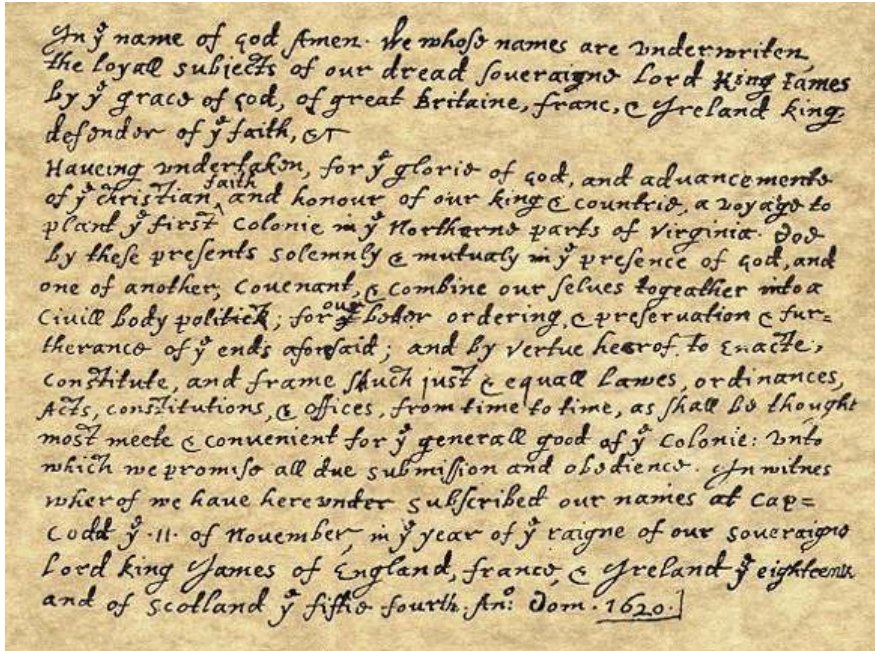 In yͤ name of god Amen. We whose names are vnderwriten,
the loyall subjects of our dread soveraigne Lord King Iames
by yͤ grace of god, of great Britaine, franc, & Ireland king,
defender of yͤ faith, &c
Haveing vndertaken, for yͤ glorie of god, and advancemente
of yͤ christian ^faith and honour of our king & countrie, a voyage to
plant yͤ first colonie in yͤ Northerne parts of Virginia. Doe
by these presents solemnly & mutualy in yͤ presence of god, and
one of another, covenant, & combine our selves togeather into a
Civill body politick; for our better ordering, & preservation & fur=
therance of yͤ ends aforesaid; and by vertue hearof, to Enacte,
constitute, and frame shuch just & equall Lawes, ordinances,
Acts, constitutions, & offices, from time to time, as shall be thought
most meete & convenient for yͤ generall good of yͤ Colonie: vnto
which we promise all due submission and obedience. In witnes
wherof we have herevnder subscribed our names at Cap=
Codd yͤ .11. of November, in yͤ year of yͤ raigne of our soveraigne
Lord king James of England, france, & Ireland yͤ eighteenth
and of Scotland yͤ fiftie fourth. Anº: Dom. 1620.]